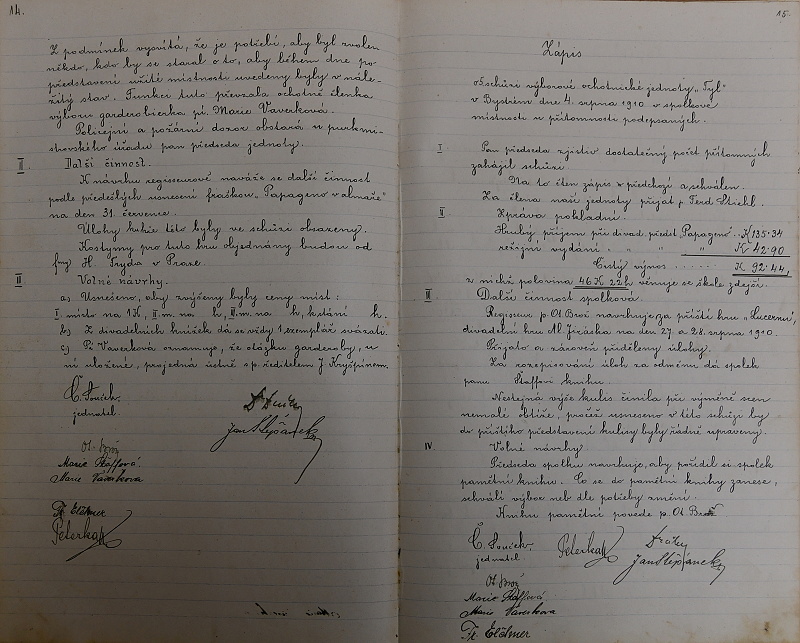 14.
Z podmínek vysvítá, že je potřebí, aby byl zvolen
někdo, kdo by se staral o to, aby během dne po
představení užité místnosti uvedeny byly v nále-
žitý stav. Funkci tuto převzala ochotně členka
výboru garderobierka pí. Marie Vaverková.
Policejní a požární dozor obstará u purkmi-
strovského úřadu pan předseda jednoty.
II Další činnost.
K návrhu regisseurově naváže se další činnost
podle předešlých usnesení fraškou „Papageno v almaře"
na den 31. července.
Úlohy kusu této byly ve schůzi obsazeny.
Kostymy pro tuto hru objednány budou od
fmy H. Tryda v Praze.
II Volné návrhy.
a) Usneseno, aby zvýšeny byly ceny míst:
I. místo na 1K, II. m. na h, III. m. na h, k stání h.
b) Z divadelních knížek dá se vždy 1 exemplář svázati.
c) Pí Vaverková oznamuje, že otázku garderoby, u
ní uložené, projedná ústně s p. ředitelem J Kryšpínem.
Č. Souček
jednatel.
Jan Štěpánek
Ot. Brož
Marie Štaffová
Marie Vaverkova
Fr. Elčkner
Peterka
15.
Zápis
o schůzi výborové ochotnické jednoty „Tyl"
v Bystrém dne 4. srpna 1910 v spolkové
místnosti v přítomnosti podepsaných.
I Pan předseda zjistiv dostatečný počet přítomných
zahájil schůzi.
Na to čten zápis z předchozí a schválen.
Za člena naší jednoty přijat p Ferd Stiehl.
II Zpráva pokladní.
Hrubý příjem při divad. předst. „Papageno" .. K 135·34
režijní vydání „ „ „ „ K 42·90
Čistý výnos ...... K 92·44,
z nichž polovina 46 K 22 h věnuje se škole zdejší.
III Další činnost spolková.
Regisseur p. Ot. Brož navrhuje za příští hru „Lucernu",
divadelní hru Al. Jiráska na den 27. a 28. srpna 1910.
Přijato a zároveň přiděleny úlohy.
Za rozepisování úloh za odměnu dá spolek
panu Štaffovi knihu.
Nestejná výše kulis činila při výměně scen
nemalé obtíže, pročež usneseno v této schůzi by
do příštího představení kulisy byly řádně upraveny.
IV Volné návrhy
Předseda spolku navrhuje, aby pořídil si spolek
pamětní knihu. Co se do pamětní knihy zanese,
schválí výbor neb dle potřeby změní.
Knihu pamětní povede p. Ot. Brož
Č. Souček
jednatel
Peterka
Jan Štěpánek
Ot. Brož
Marie Štaffová
Marie Vaverkova
Fr. Elčkner